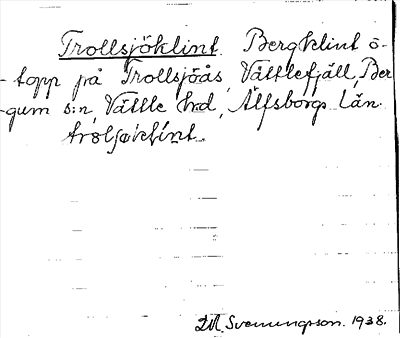 Trollsjöklint. Bergklint ö-
- topp på Trollsjöås, Vättlefjäll, Ber
-gum s:n, Vättle hd, Älfsborgs län.
trolsjøklint.
D.A. Svenungsson. 1938.